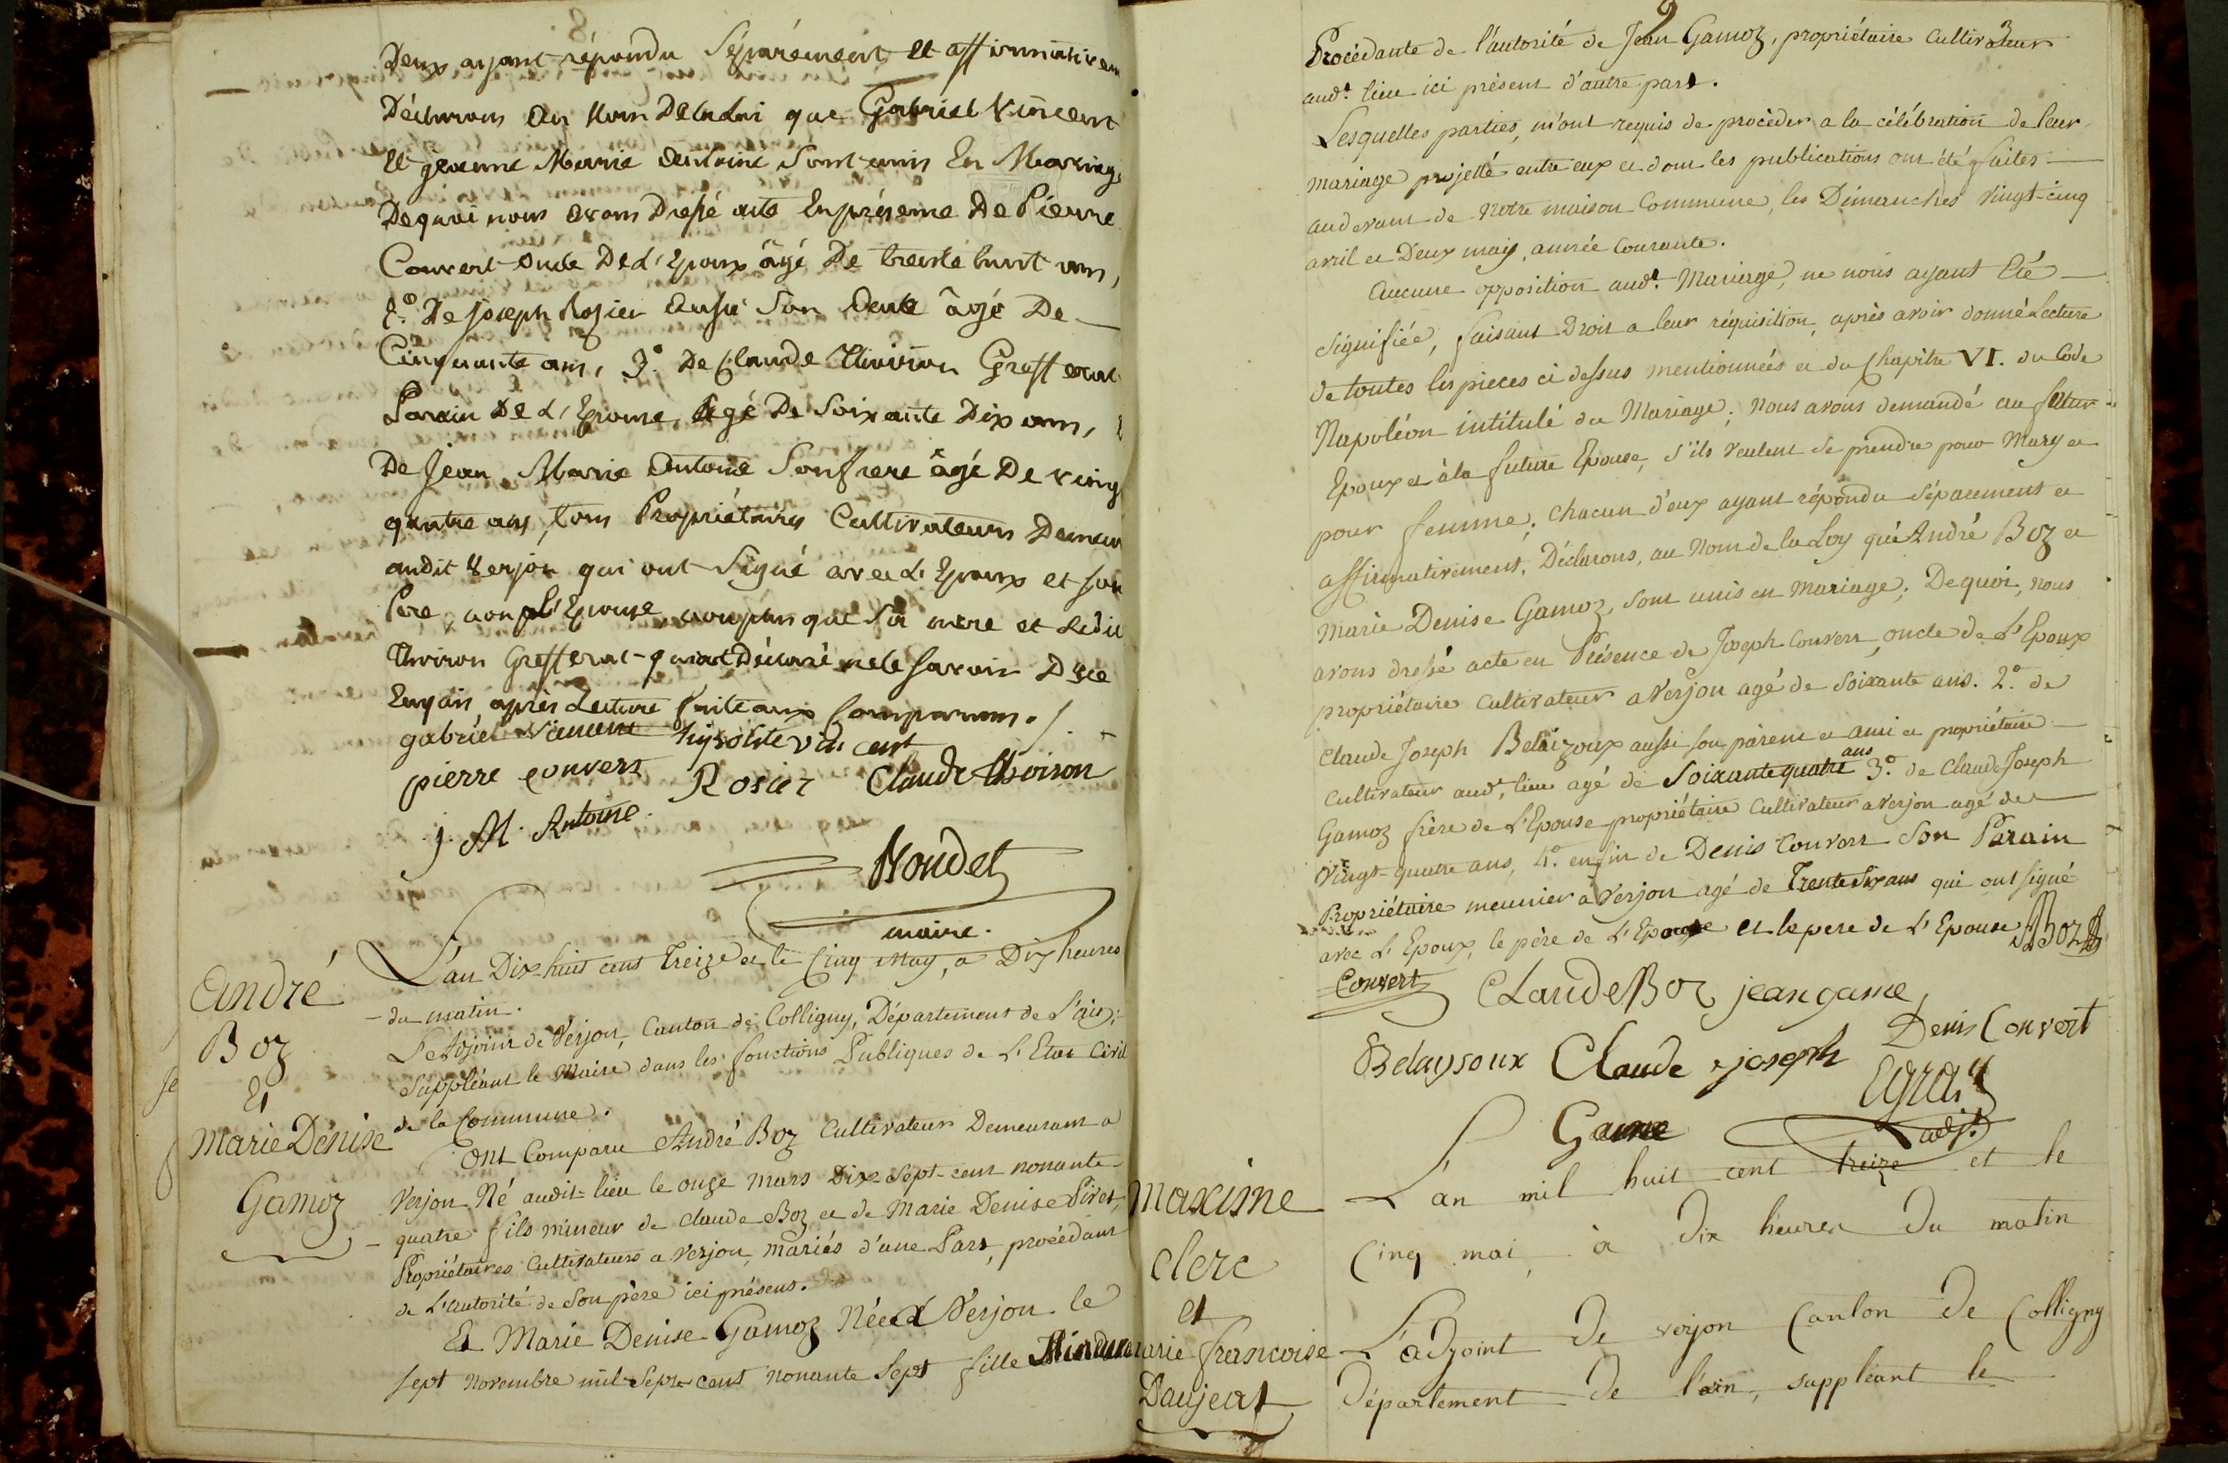 Deux ayant répondu séparément et affirmativem
Déclarons au Nom De la Loi que Gabriel Vincent
et jeanne Marie Antoine Sont unis En Mariage
De quoi nous avons Dressé acte En présence De Pierre
Convert oncle De L'Epoux âgé De trente huit ans,
2.° De joseph Rosier aussi Son oncle âgé De
Cinquante ans, 3.° De Claude Thoiron Grefferat
Parain De L'Epouse âgé De Soixante Dix ans,
De Jean Marie Antoine Son frere âgé De ving
quatre ans, tous Propriétaires Cultivateurs Demeur
audit Verjon qui ont Signé avec L'Epoux et son
Pere, non pl'Epouse non plus que Sa mere et Ledit
Thoiron Grefferat qui ont Déclaré ne le Savoir De ce
Enquis après Lecture faite aux Comparans./.
gabriel vincent hypolite vincent
pierre convert Rosier Claude thoiron
j. M. Antoine.
Nondet
maire.
André
Boz
Et
Marie Denise
Gamoz
L'an Dix-huit cent Treize et le Cinq May, a Dix heures
du matin.
L'Adjoint de Verjon, Canton de Colligny, Département de L'ain,
Suppléant le Maire dans les fonctions Publiques de L'Etat Civil
de la Commune.
Ont Comparu André Boz Cultivateur Demeurant a
Verjon Né audit lieu le onze Mars Dix-Sept-cent nonante-
quatre fils mineur de Claude Boz et de Marie Denise Piret,
Propriétaires Cultivateurs a Verjon, Mariés d'une Part, procédant
de L'autorité de Son père ici présent.
Et Marie Denise Gamoz Née a Verjon le
sept novembre mil-Sept-cent nonante Sept fille Mineure
9
Procédante de l'autorité de Jean Gamoz, propriétaire Cultivateur
aud.t lieu ici présent d'autre part.
Lesquelles parties, m'ont requis de procéder a la célébration de leur
mariage projetté entre eux et dont les publications ont été faites
audevant de Notre maison Commune, les Dimanches Vingt-cinq
avril et Deux may, année Courante.
Aucune opposition aud.t Mariage, ne nous ayant Eté
Signifiée, faisant Droit a leur réquisition, après avoir donné Lecture
de toutes les pieces ci dessus mentionnées et du Chapitre VI. du Code
Napoléon intitulé du Mariage; Nous avons demandé au futur
Epoux et à la future Epouse, s'ils veulent se prendre pour Mary et
pour femme; Chacun d'eux ayant répondu Séparement et
affirmativement, Déclarons, au Nom de la Loy que André Boz et
Marie Denise Gamoz, sont unis en Mariage; De quoi, nous
avons dressé acte en Présence de Joseph Convert, oncle de L'Epoux
propriétaire Cultivateur a Verjon agé de Soixante ans. 2.° de
Claude Joseph Belaizoux aussi son parent et ami et propriétaire
Cultivateur aud.t lieu agé de Soixante quatre ans 3.° de Claude Joseph
Gamoz frère de L'Epouse propriétaire Cultivateur a Verjon agé de
Vingt-quatre ans, 4.° enfin de Denis Convert Son Parain
Propriétaire meunier a Verjon agé de Trente Six ans qui ont signé
avec L'Epoux, le père de L'Epouse et le pere de L'Epouse ABoz
Convert Claude Boz jean game
Denis Convert
Belaysoux Claude joseph
Game
Egraz
adj.t
Maxime
Clerc
et
marie francoise
Daujeat
L'an mil huit cent treize et le
Cinq mai, à Dix heures Du matin
L'adjoint De verjon Canton De Colligny
Département De l'ain, suppléant le